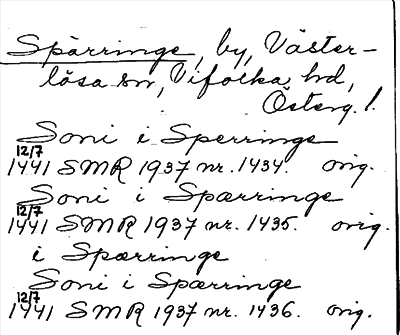 Spärringe, by, Väster-
lösa sn, Vifolka hd,
Österg.!
Soni i Sperringe
12/7
1441 SMR 1937 nr. 1434. orig.
Soni i Spærringe
12/7
1441 SMR 1937 nr. 1435. orig.
i Spærringe
Soni i Spærringe
12/7
1441 SMR 1937 nr. 1436. orig.